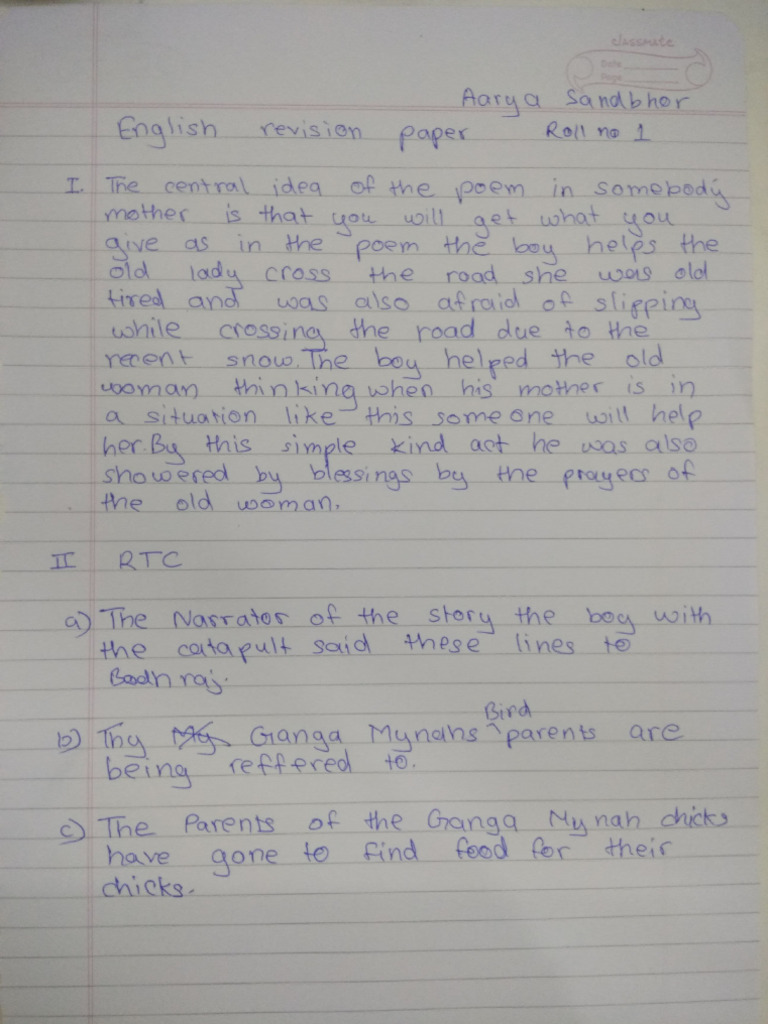 classmate
Date
Page
Aarya Sandbhor
English revision paper Roll no 1
I. The central idea of the poem in somebody
mother is that you will get what you
give as in the poem the boy helps the
old lady cross the road she was old
tired and was also afraid of slipping
while crossing the road due to the
recent snow. The boy helped the old
woman thinking when his mother is in
a situation like this some one will help
her. By this simple kind act he was also
showered by blessings by the prayers of
the old woman.
II RTC
a) The Narrator of the story the boy with
the catapult said these lines to
Bodh raj.
Bird
b) Thy Ganga Mynahs ^ parents are
being reffered to.
c) The Parents of the Ganga Mynah chicks
have gone to find food for their
chicks.